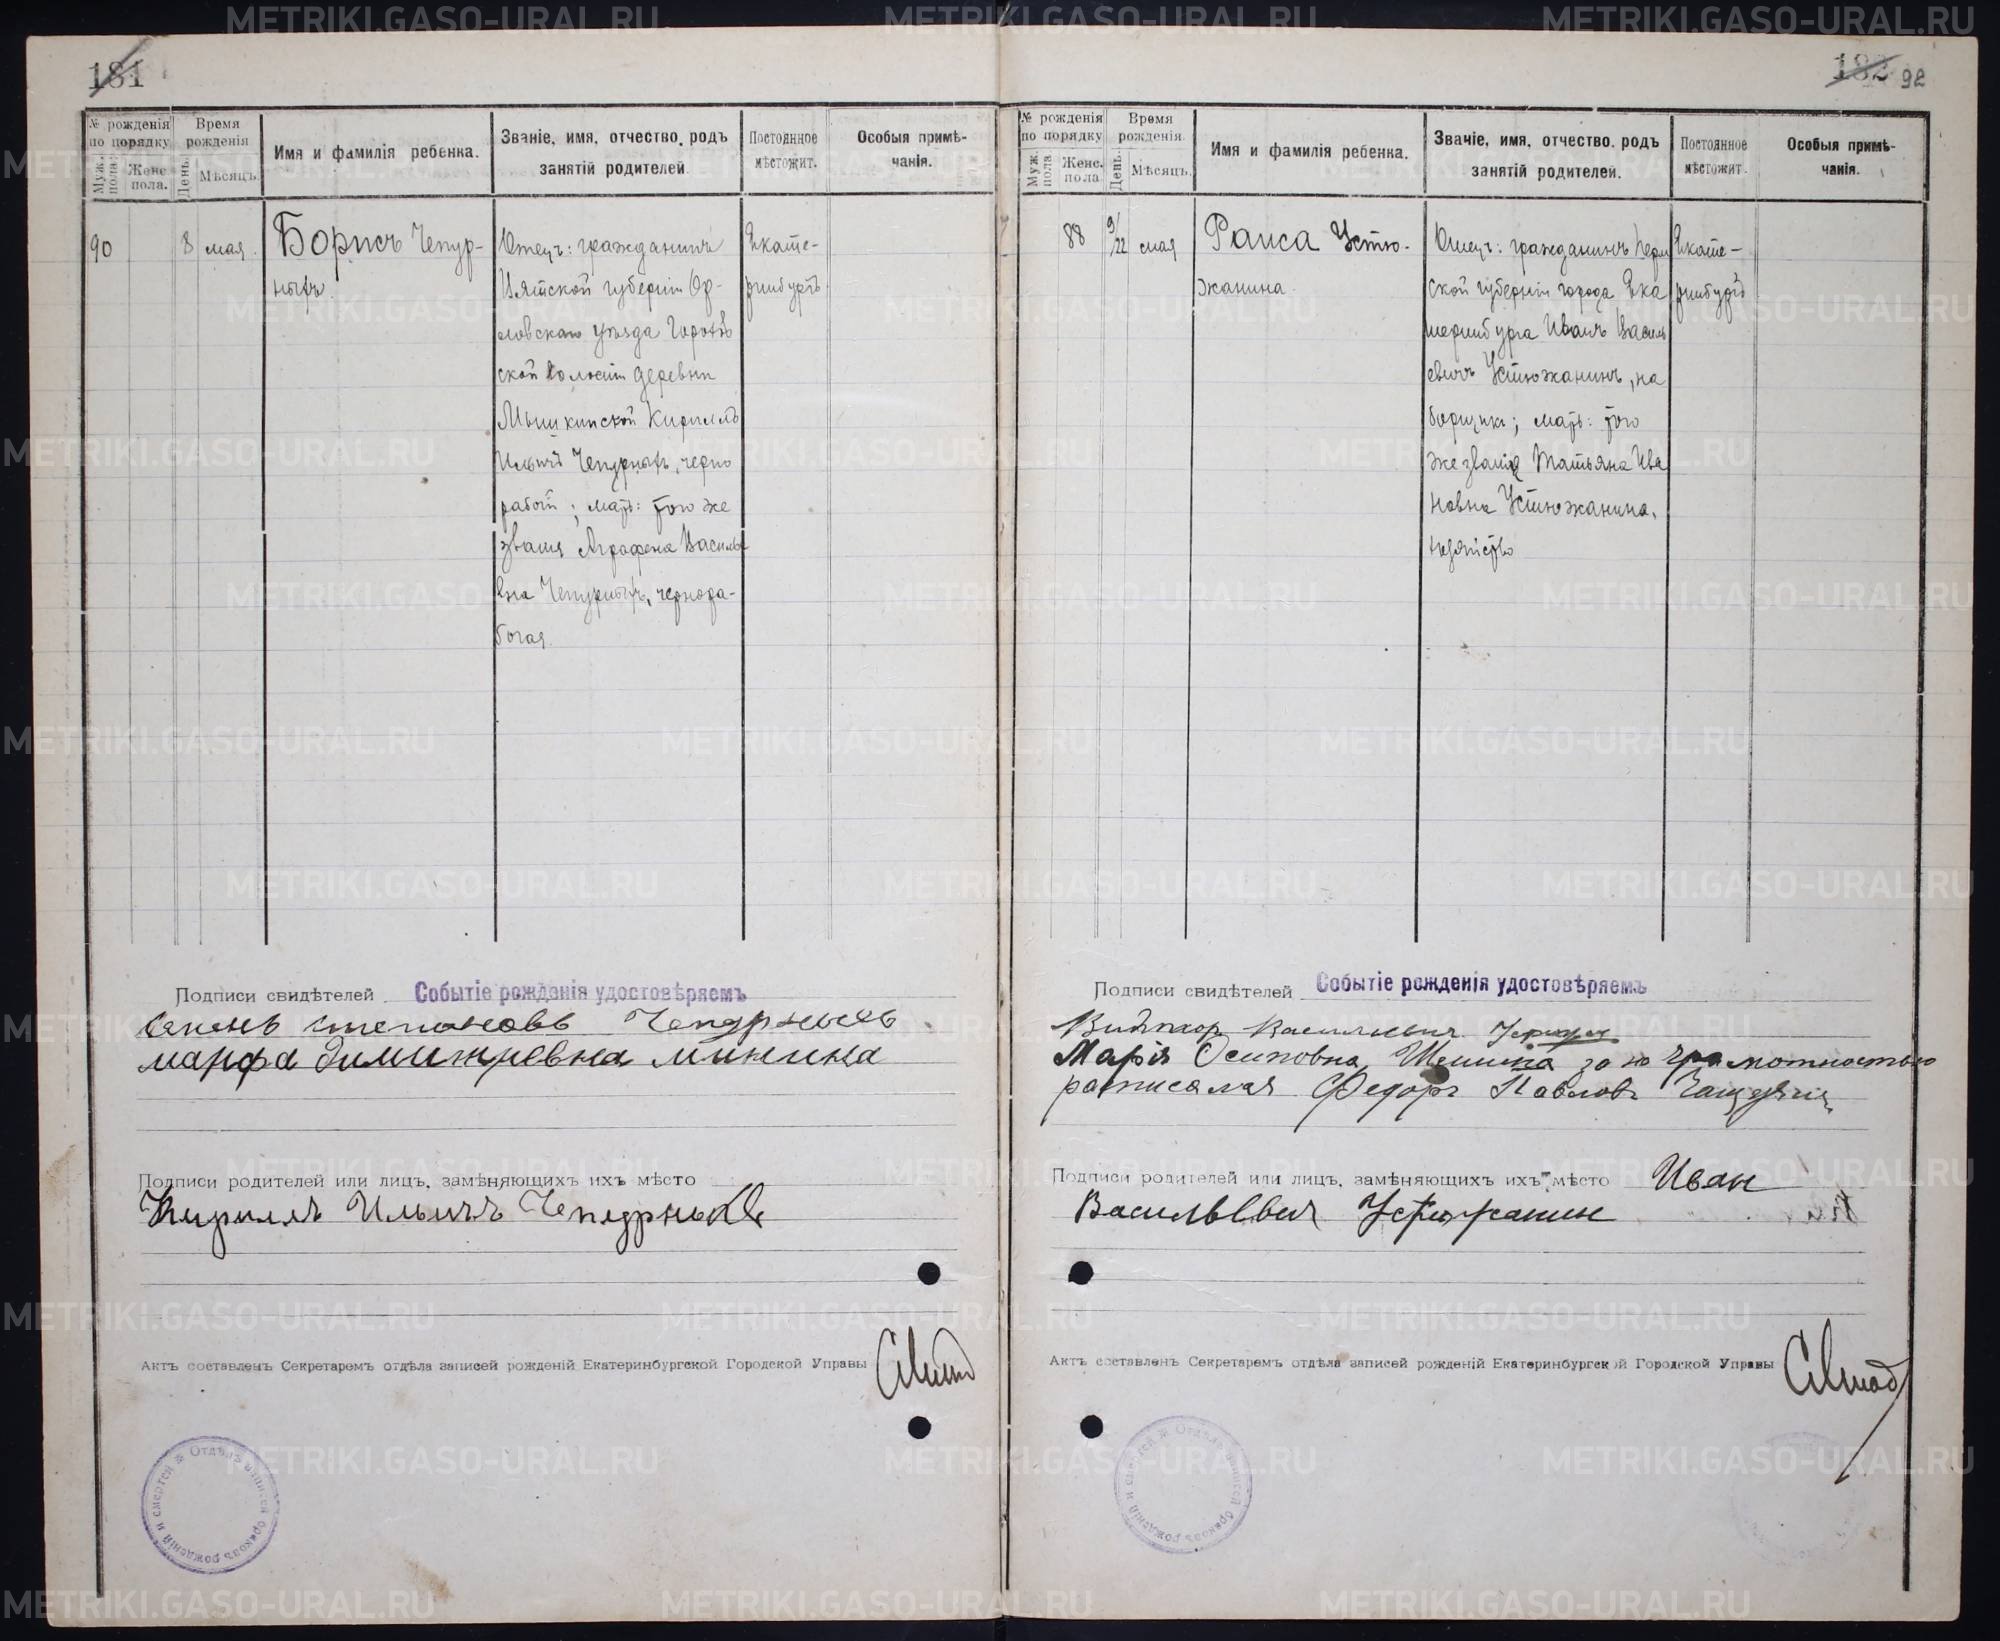 181
№ рожденія по порядку
Муж. пола.
Женс. пола.
Время рожденія
День.
Мѣсяцъ.
Имя и фамилія ребенка.
Званіе, имя, отчество, родъ занятій родителей.
Постоянное мѣстожит.
Особыя примѣчанія.
90
8
мая
Борисъ Чепур-
ныхъ.
Отецъ: гражданинъ
Вятской губерніи Ор-
ловскаго уѣзда
ской волости деревни
Мышкинской Кириллъ
Ильичъ Чепурныхъ, черно
рабочій; мать: того же
званія Аграфена Василь
евна Чепурныхъ, чернора-
бочая.
Екате-
ринбургъ
Подписи свидѣтелей
Событіе рожденія удостовѣряемъ
степановъ Чепурныхъ
марфа димитревна минина
Подписи родителей или лицъ, замѣняющихъ ихъ мѣсто
Кириллъ Ильичъ Чепурныхъ
Актъ составленъ Секретаремъ отдѣла записей рожденій Екатеринбургской Городской Управы
Отдѣлъ записей браковъ рожденій и смертей
182 92
№ рожденія по порядку
Муж. пола
Женс. пола
Время рожденія.
День.
Мѣсяцъ.
Имя и фамилія ребенка.
Званіе, имя, отчество, родъ занятій родителей.
Постоянное мѣстожит.
Особыя примѣчанія.
88
9/22
мая
Раиса Устю-
жанина.
Отецъ: гражданинъ Перм
ской губерніи города Ека
теринбурга Иванъ Василь
евичъ Устюжанинъ, на
борщикъ; мать: того
же званія Татьяна Ива
новна Устюжанина,
Екате-
ринбургъ
Подписи свидѣтелей
Событіе рожденія удостовѣряемъ
Марія Осиповна за не грамотностью
расписался Федоръ Павловъ
Подписи родителей или лицъ, замѣняющихъ ихъ мѣсто Иван
Васильевич Устюжанин
Актъ составленъ Секретаремъ отдѣла записей рожденій Екатеринбургской Городской Управы
Отдѣлъ записей браковъ рожденій и смертей
METRIKI.GASO-URAL.RU